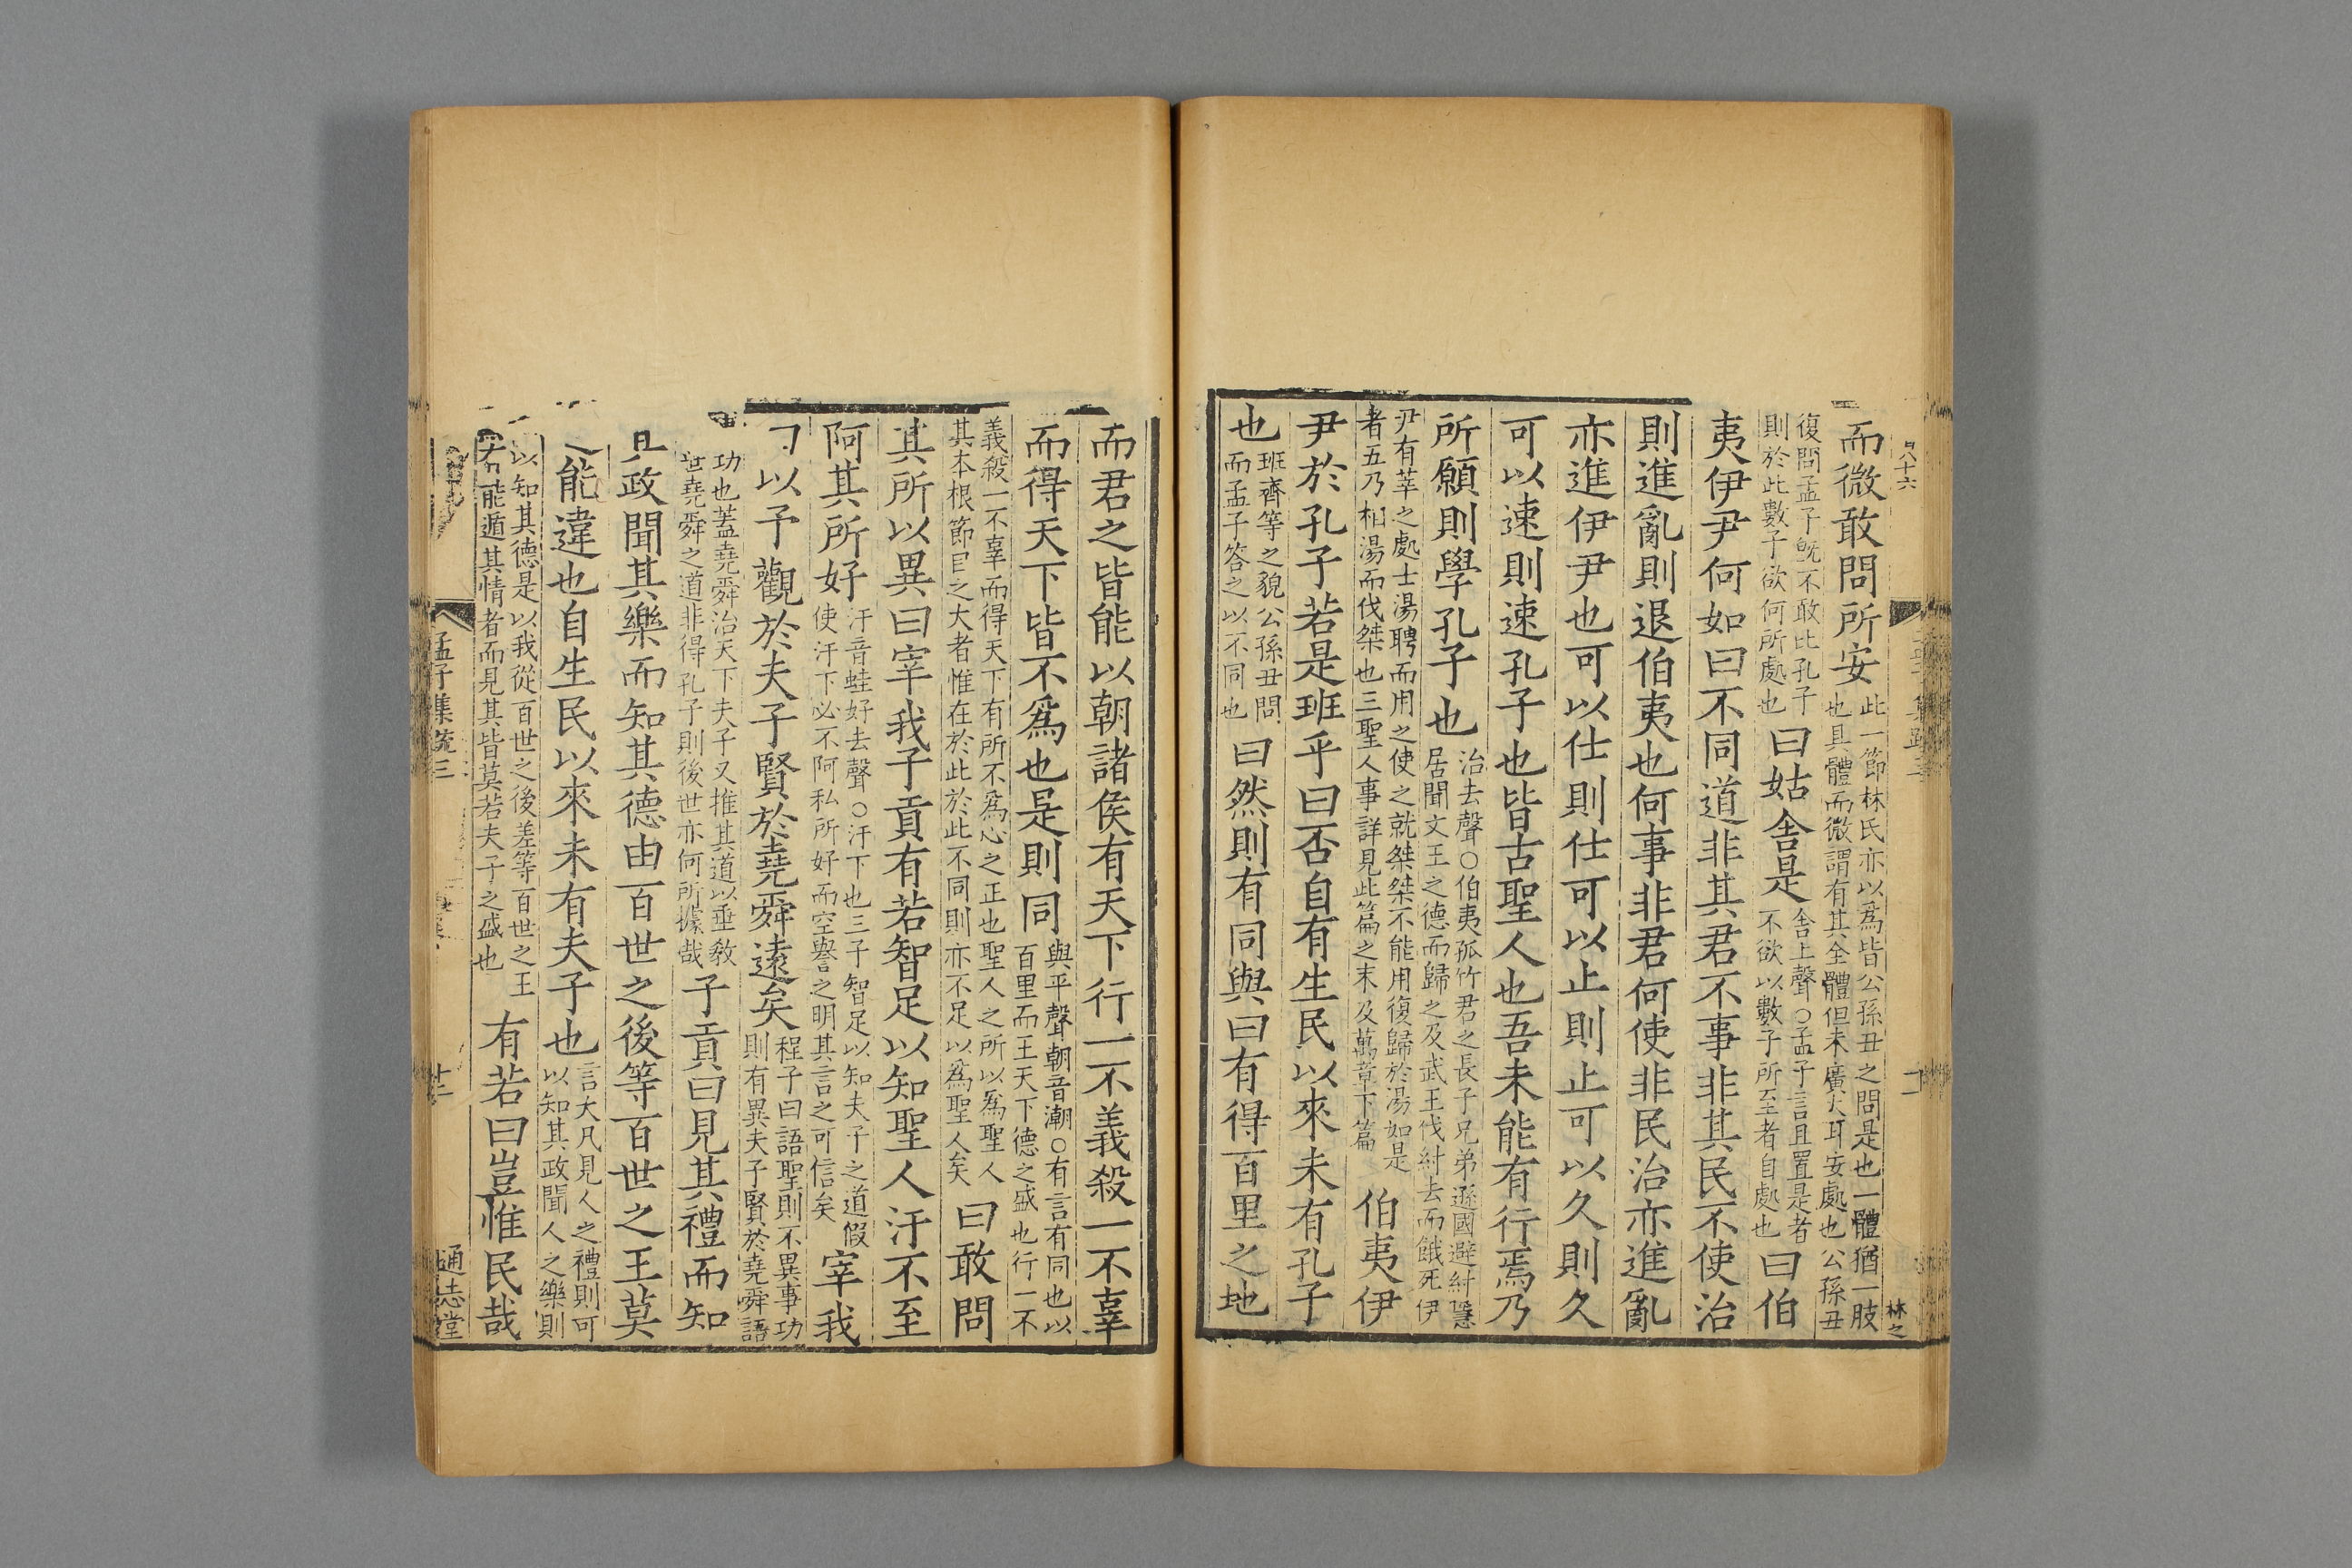 而微敢問所安此一節林氏亦以為皆公孫丑之問是也一體猶一肢也具體而微謂有其全體但未廣大耳安處也公孫丑
復問孟子旣不敢比孔子則於此數子欲何所處也曰姑舍是舍上聲○孟子言且置是者不欲以數子所至者自處也曰伯
夷伊尹何如曰不同道非其君不事非其民不使治
則進亂則退伯夷也何事非君何使非民治亦進亂
亦進伊尹也可以仕則仕可以止則止可以久則久
可以速則速孔子也皆古聖人也吾未能有行焉乃
所願則學孔子也治去聲○伯夷孤竹君之長子兄弟遜國避紂隱居聞文王之德而歸之及武王伐紂去而餓死伊
尹有莘之處士湯聘而用之使之就桀桀不能用復歸於湯如是者五乃相湯而伐桀也三聖人事詳見此篇之末及萬章下篇伯夷伊
尹於孔子若是班乎曰否自有生民以來未有孔子
也班齊等之貌公孫丑問而孟子答之以不同也曰然則有同與曰有得百里之地
而君之皆能以朝諸侯有天下行一不義殺一不辜
而得天下皆不爲也是則同與平聲朝音潮○有言有同也以百里而王天下德之盛也行一不
義殺一不辜而得天下有所不爲心之正也聖人之所以爲聖人其本根節目之大者惟在於此於此不同則亦不足以爲聖人矣曰敢問
其所以異曰宰我子貢有若智足以知聖人汙不至
阿其所好汙音蛙好去聲○汙下也三子智足以知夫子之道假使汙下必不阿私所好而空譽之明其言之可信矣宰我
曰以予觀於夫子賢於堯舜遠矣程子曰語聖則不異事功則有異夫子賢於堯舜語
功也蓋堯舜治天下夫子又推其道以垂敎世堯舜之道非得孔子則後世亦何所據哉子貢曰見其禮而知
其政聞其樂而知其德由百世之後等百世之王莫
之能違也自生民以來未有夫子也言大凡見人之禮則可以知其政聞人之樂則
以知其德是以我從百世之後差等百世之王若能遁其情者而見其皆莫若夫子之盛也有若曰豈惟民哉
孟子集疏三
通志堂
林之